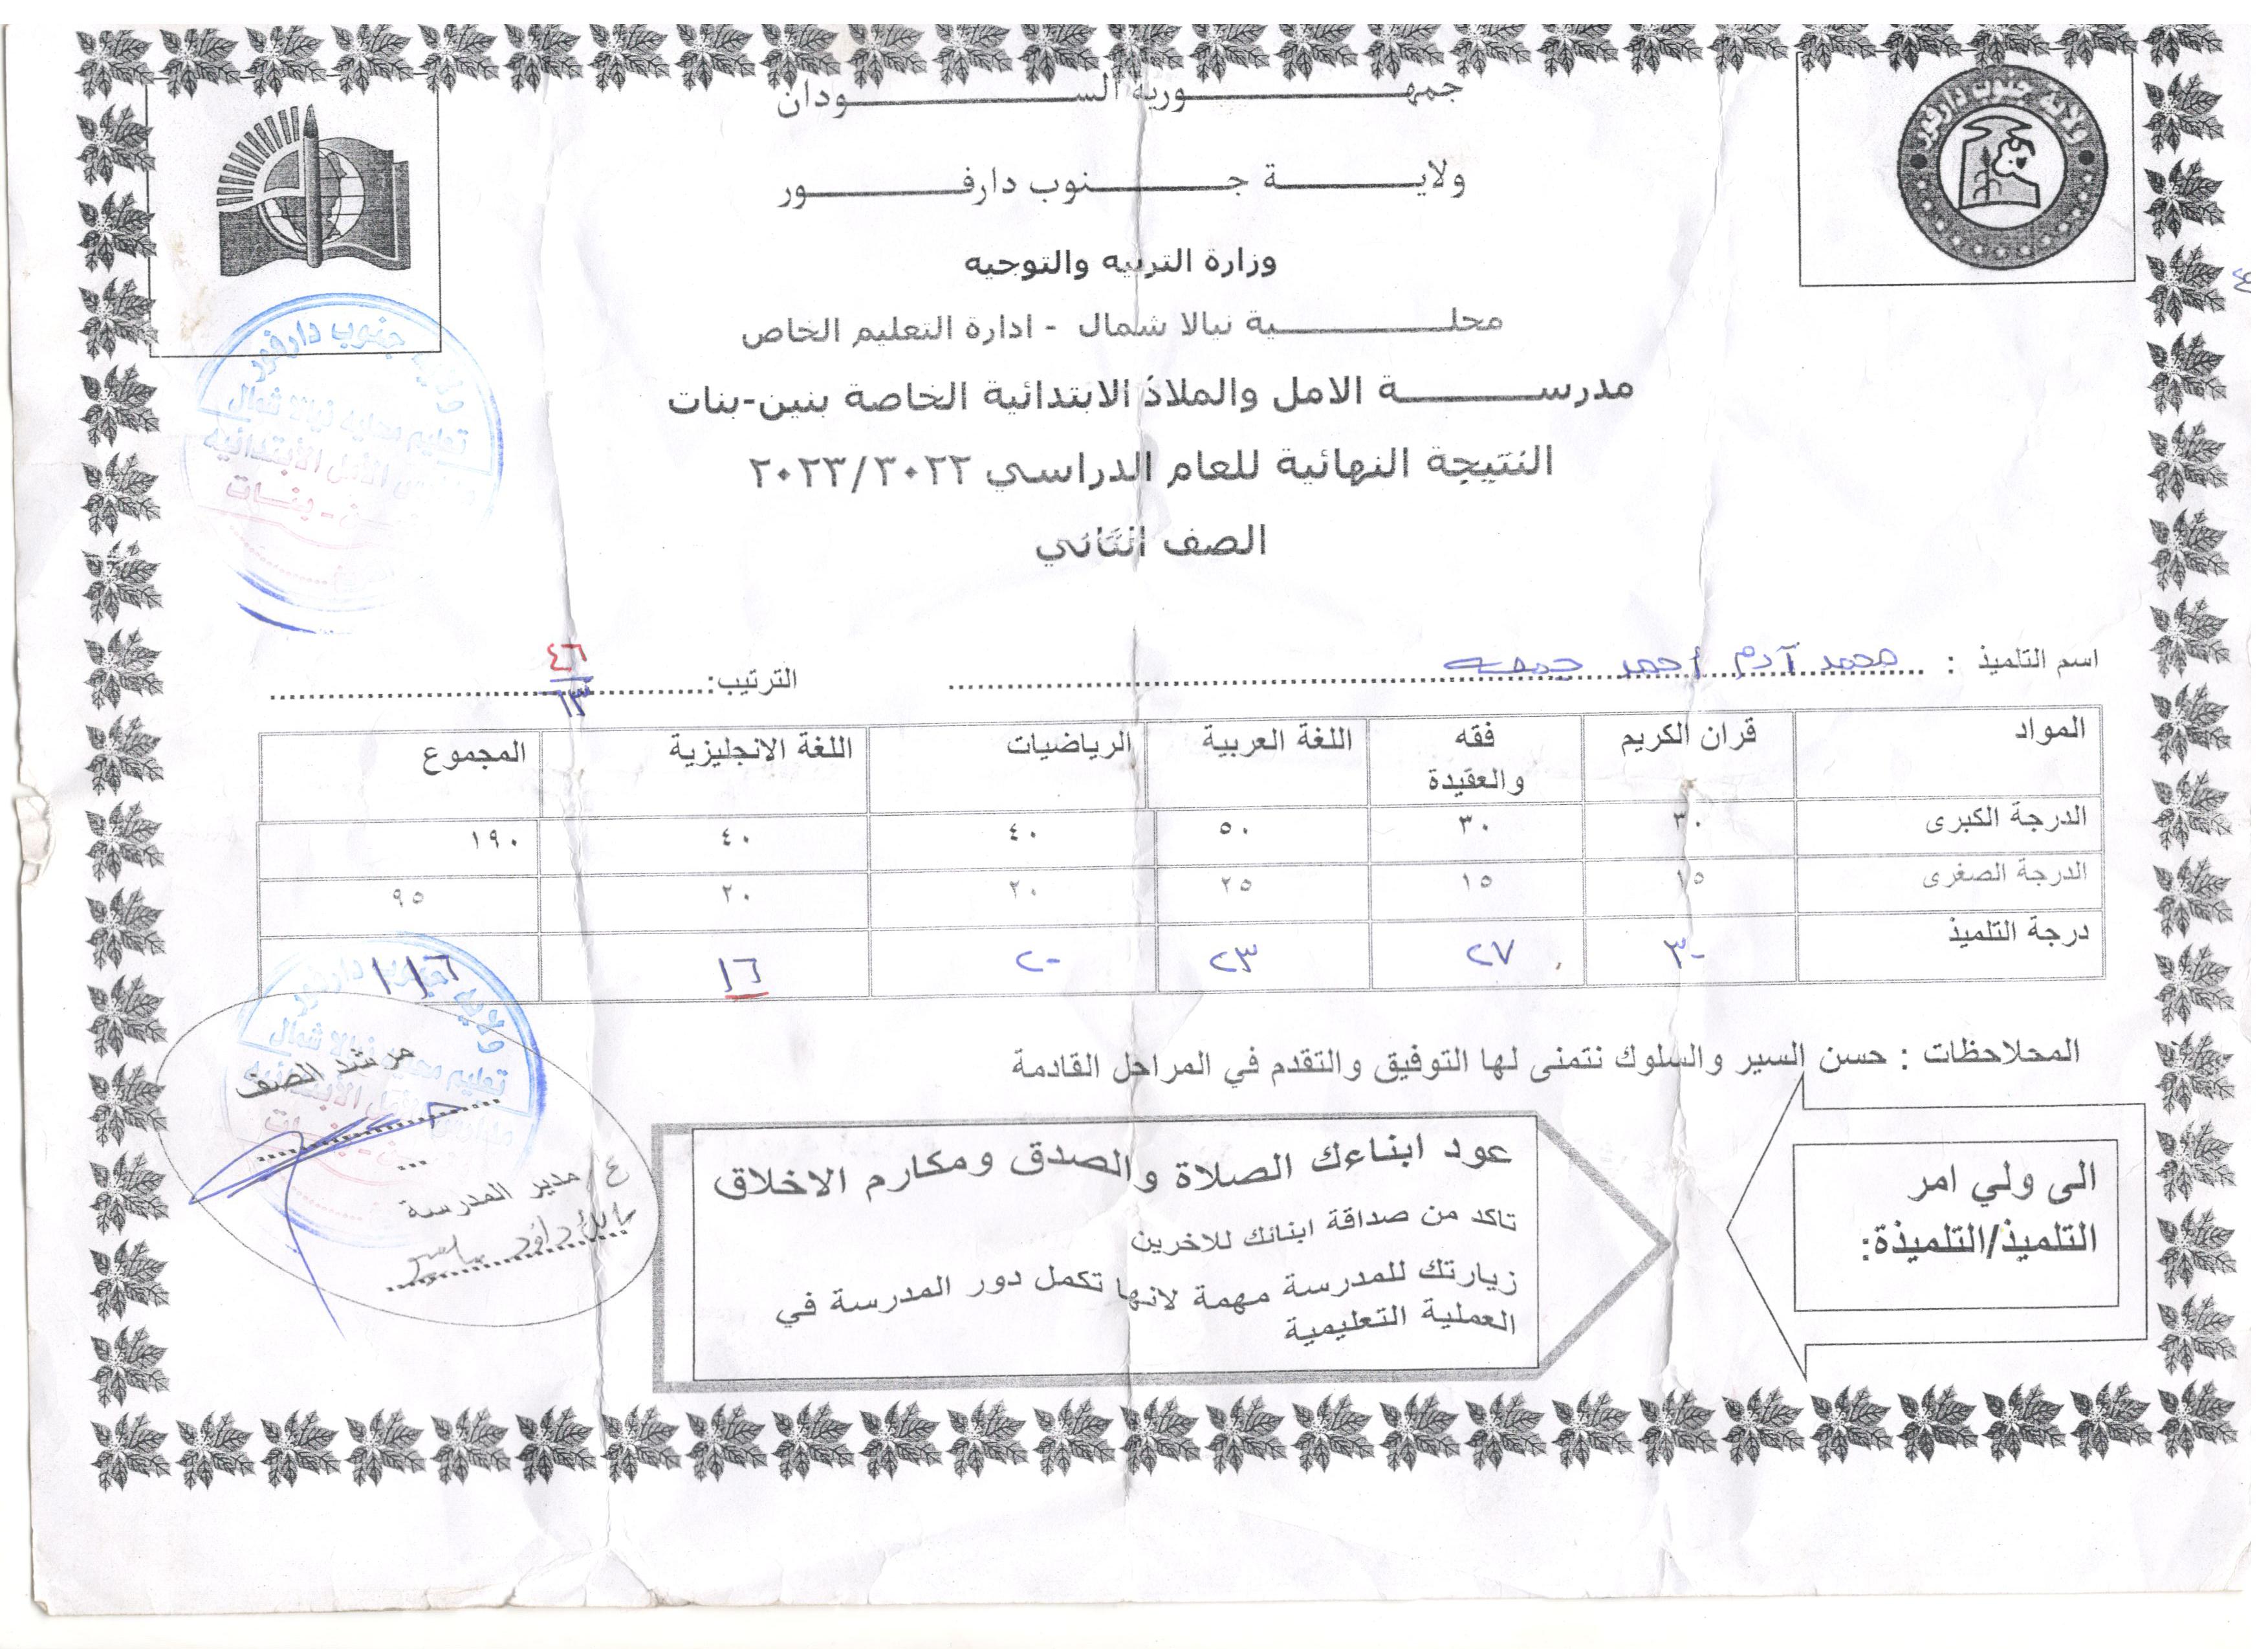 جمهورية السودان
ولاية جنوب دارفور
ولاية جنوب دارفور
وزارة التربيه والتوجيه
محلية نيالا شمال - ادارة التعليم الخاص
مدرسة الامل والملاذ الابتدائية الخاصة بنين-بنات
النتيجة النهائية للعام الدراسي ٢٠٢٢/٢٠٢٣
الصف الثاني
ولاية جنوب دارفور
تعليم محلية نيالا شمال
الأمل الأبتدائيه
بنات
اسم التلميذ : محمد آدم أحمد جمعه الترتيب: ٤٦/٦٣
المواد قران الكريم فقه والعقيدة اللغة العربية الرياضيات اللغة الانجليزية المجموع
الدرجة الكبرى ٣٠ ٣٠ ٥٠ ٤٠ ٤٠ ١٩٠
الدرجة الصغرى ١٥ ١٥ ٢٥ ٢٠ ٢٠ ٩٥
درجة التلميذ ٣٠ ٢٧ ٢٣ ٢٠ ١٦ ١١٦
المحلاحظات : حسن السير والسلوك نتمنى لها التوفيق والتقدم في المراحل القادمة
الى ولي امر
التلميذ/التلميذة:
عود ابناءك الصلاة والصدق ومكارم الاخلاق
تاكد من صداقة ابنائك للاخرين
زيارتك للمدرسة مهمة لانها تكمل دور المدرسة في
العملية التعليمية
ولايه جنوب دارفور
تعليم محليه نيالا شمال
الأبتدائيه
مرشد الصف
ع/مدير المدرسة